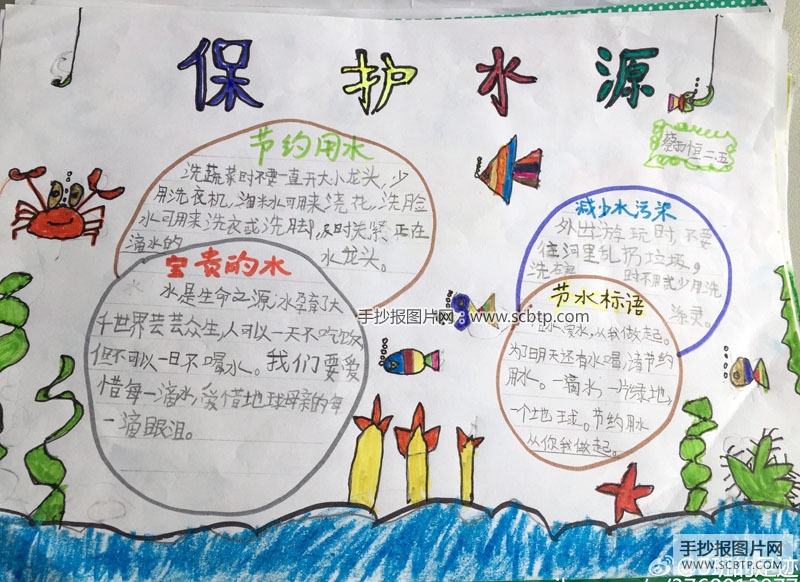 保护水源
节约用水
洗蔬菜时不要一直开大小龙头,少
用洗衣机,淘米水可用来浇花,洗脸
水可用来洗衣或洗脚,及时关紧正在
滴水的 水龙头。
宝贵的水
水是生命之源,水孕育了大
千世界芸芸众生,人可以一天不吃饭
但不可以一日不喝水。我们要爱
惜每一滴水,爱惜地球母亲的每
一滴眼泪。
减少水污染
外出游玩时,不要
往河里乱扔垃圾,
洗 时不用或少用洗
涤灵。
节水标语
水,从我做起。
为明天还有水喝,请节约
用水。一滴水,一片绿地,
一个地球。节约用水
从你我做起。
二五
手抄报图片网:www.scbtp.com
手抄报图片网
www.scbtp.com